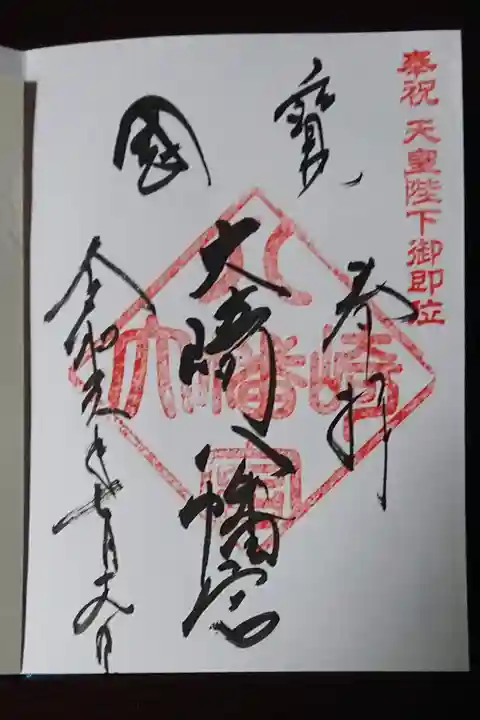 奉祝 天皇陛下御即位
國寳
奉拝
大崎八幡宮
令和元年七月七日
大崎八幡宮